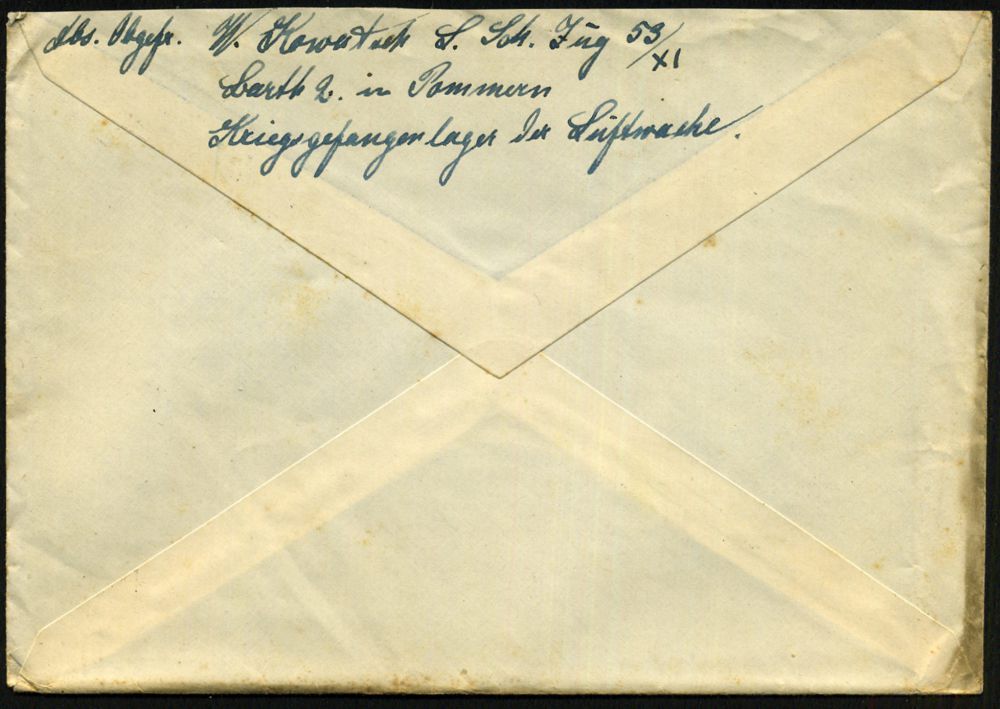 Abs. Obgefr. W. Kowatsch L. Sch. Zug 53/XI
Barth 2. in Pommern
Kriegsgefangenlager der Luftwache.